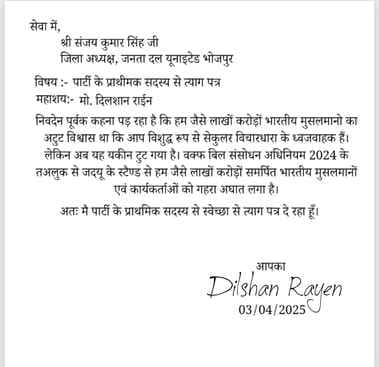 सेवा में,
श्री संजय कुमार सिंह जी
जिला अध्यक्ष, जनता दल यूनाइटेड भोजपुर
विषय :- पार्टी के प्राथीमक सदस्य से त्याग पत्र
महाशय:- मो. दिलशान राईन
निवदेन पूर्वक कहना पड़ रहा है कि हम जैसे लाखों करोड़ों भारतीय मुसलमानो का
अटुट विश्वास था कि आप विशुद्ध रूप से सेकुलर विचारधारा के ध्वजवाहक हैं।
लेकिन अब यह यकीन टुट गया है। वक्फ बिल संसोधन अधिनियम 2024 के
तअलुक से जदयू के स्टैण्ड से हम जैसे लाखों करोड़ों समर्पित भारतीय मुसलमानों
एवं कार्यकर्ताओं को गहरा अघात लगा है।
अतः मै पार्टी के प्राथमिक सदस्य से स्वेच्छा से त्याग पत्र दे रहा हूँ।
आपका
Dilshan Rayen
03/04/2025